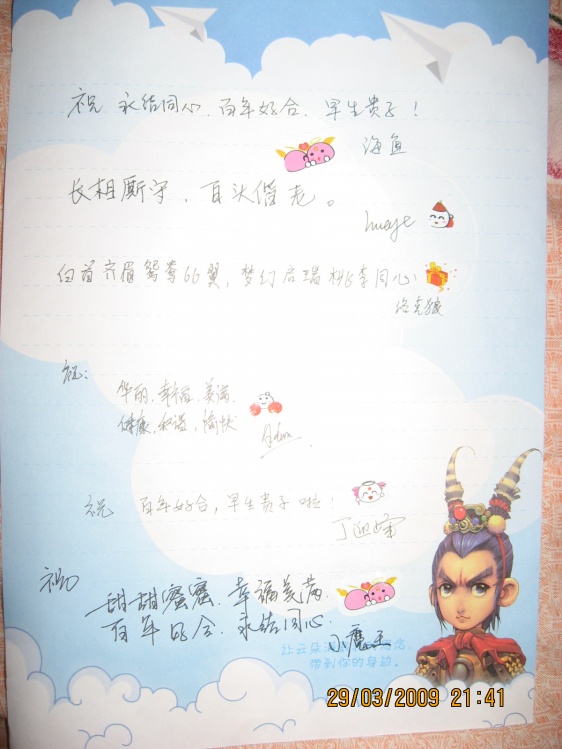 祝 永结同心、百年好合、早生贵子！
海鱼
长相厮守，百头偕老。
hueye
白首齐眉鸳鸯66翼，梦幻启瑞桃李同心
洛克狼
祝：
华丽、幸福、美满、
健康、和谐，愉快
祝 百年好合，早生贵子啦！
丁
祝 甜甜蜜蜜、幸福美满
百年好合、永结同心
小魔王
让云朵
带到你的身边。
29/03/2009 21:41